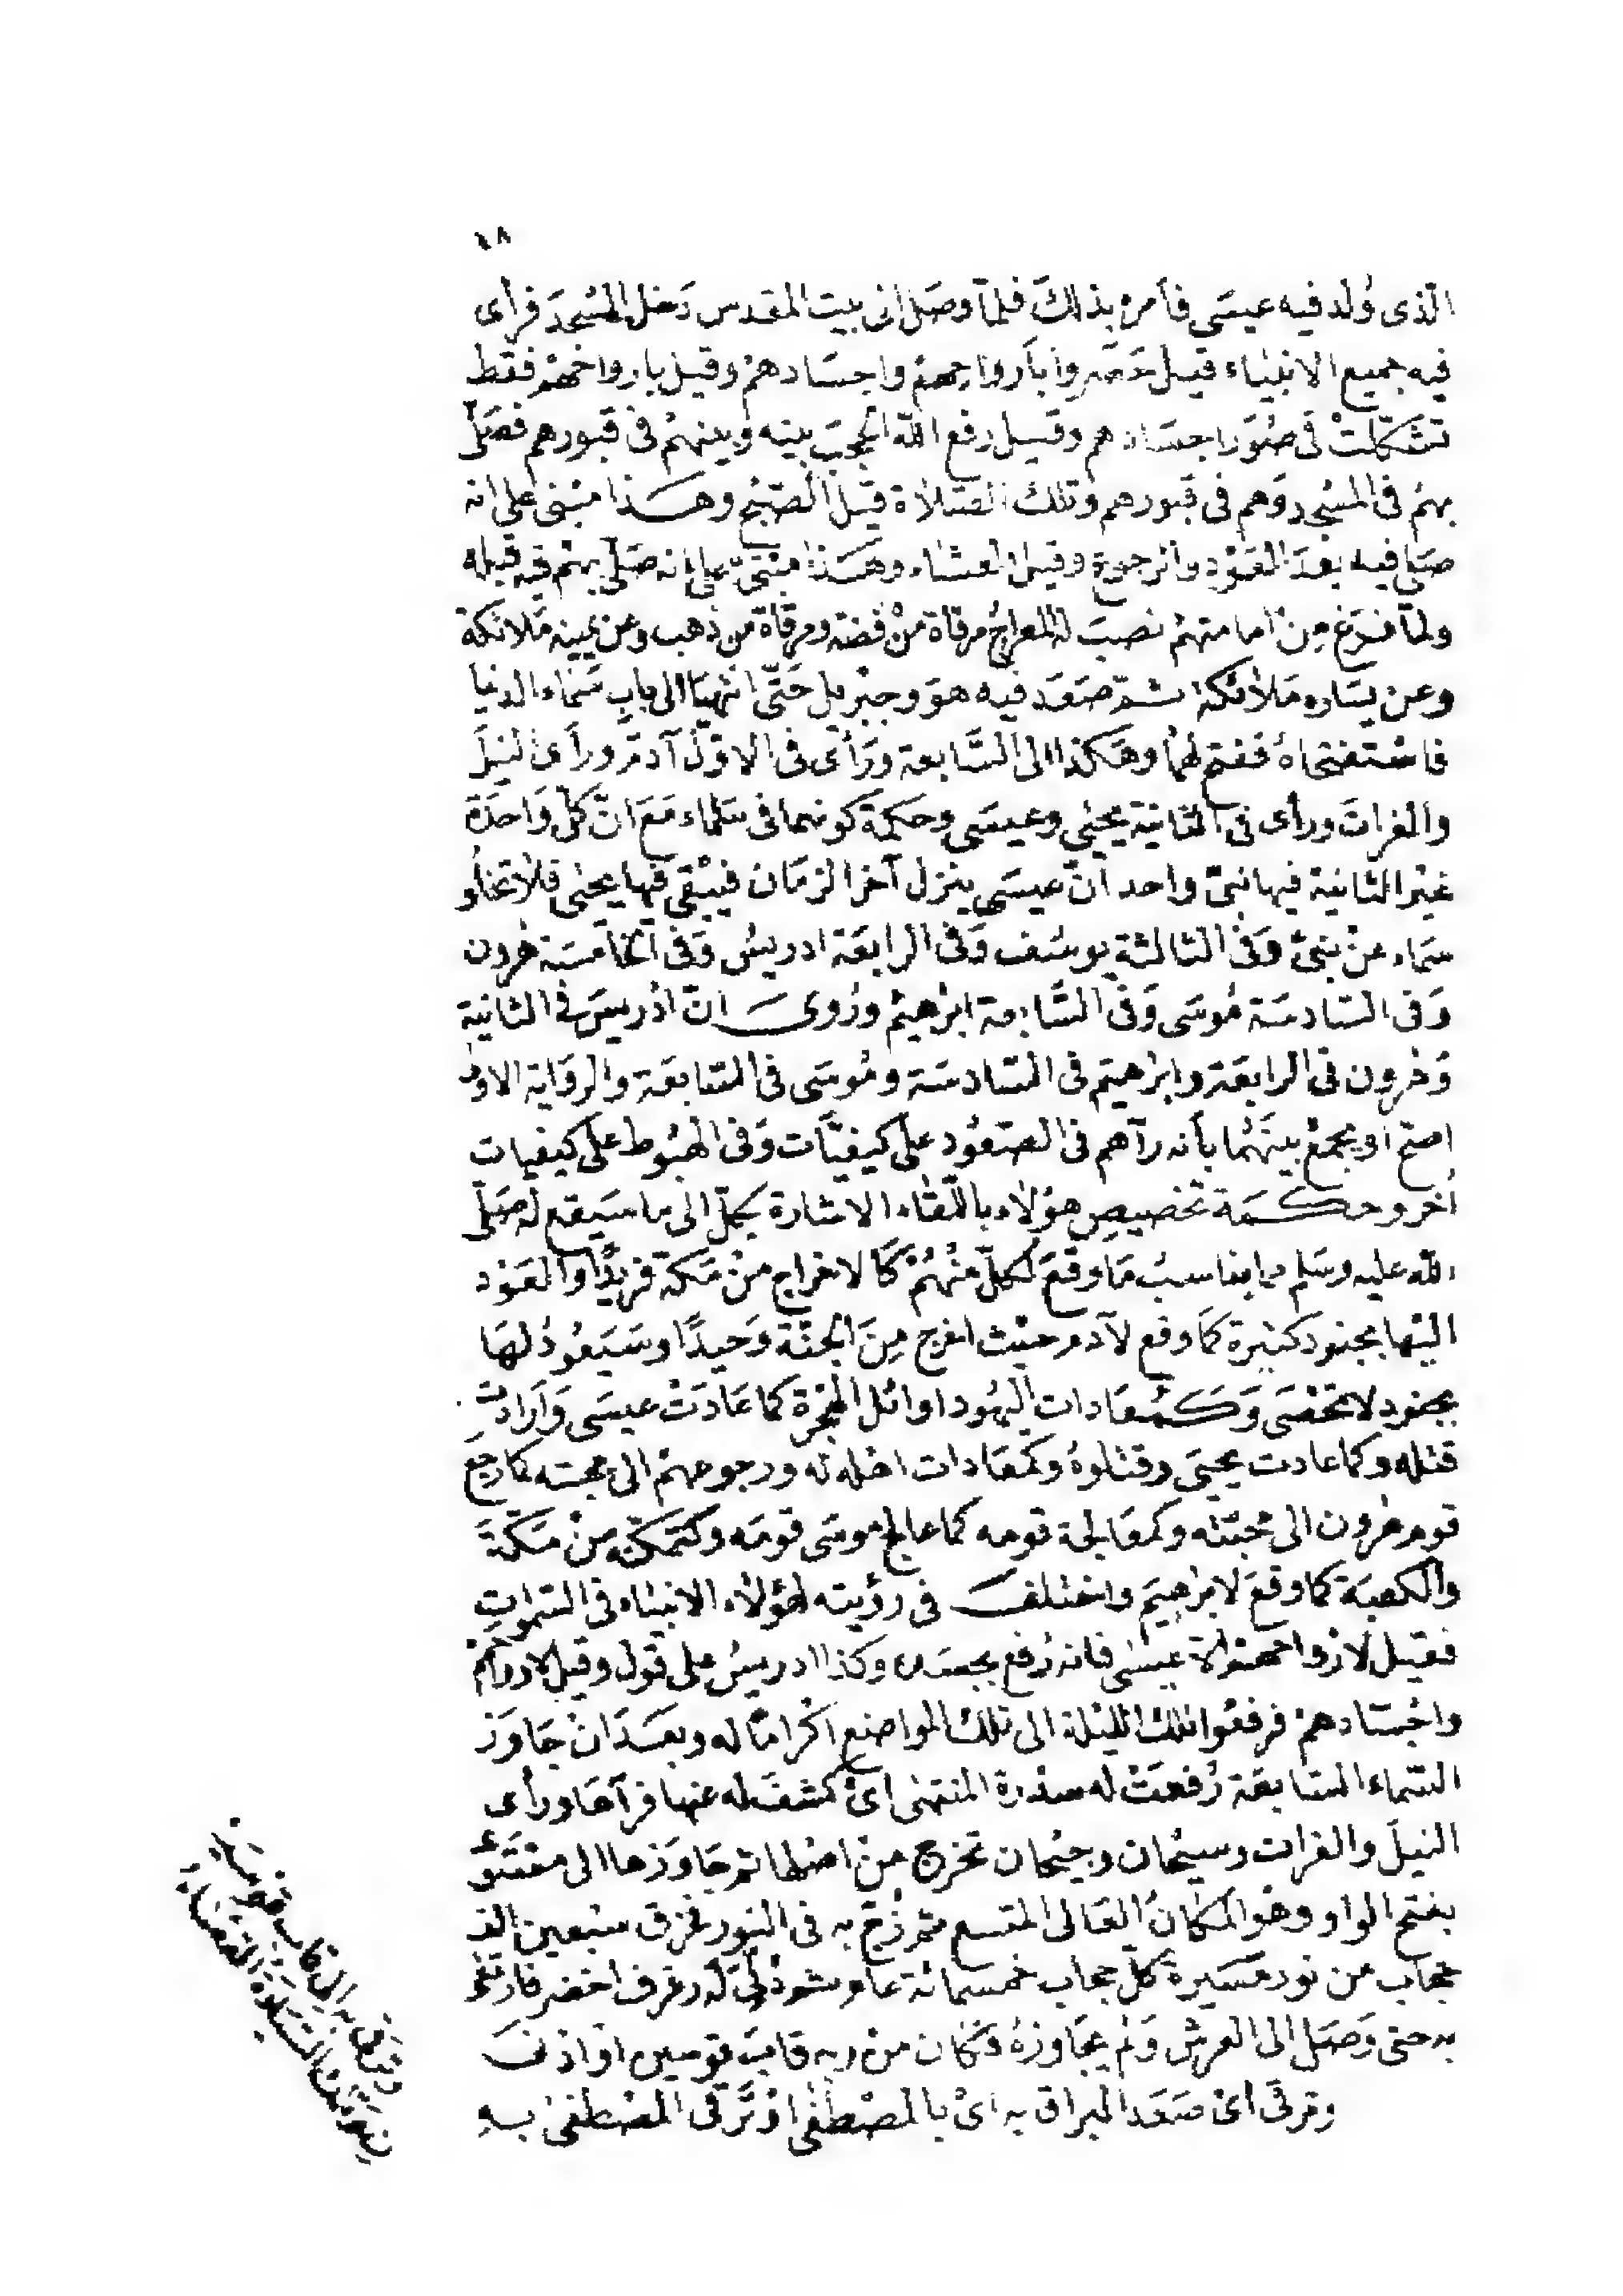 ٤٨
الذى وُلد فيه عيسَى فأمره بذلكَ فلمّا وصَل الى بيت المقدس دَخل المسْجدَ فرأى
فيه جميع الانبيَاء قيل حَضروا بأرواحِهمْ واجسَادهمْ وقيل بارواحهمْ فقط
تشكّلتْ فى صُوَر اجسَادهم وقيل رفع الله الحجبَ بينه وبينهمْ فى قبورهم فصَلّى
بهمْ فى المسْجد وَهم فى قبورهم وتلك الصَّلاة قيل الصّبْح وهذا مبْنى على انه
صَلى فيه بعدَ العَوْد والرجوع وقيل العشاء وهَذا مبْنىّ على انه صَلى بهمْ فيه قبله
ولمّا فرَغ مِنْ امامتهمْ نصبَ له المعراجُ مرقاة منْ فضة ومرقاة من ذهب وعن يمينه مَلائكة
وعن يسَاره مَلائكة ثمّ صَعَد فيه هوَ وجبْريل حَتّى انْتهيَا الى بابِ سَماء الدنيا
فاسْتفتحاهُ ففتح لهُما وهَكذا الى السَّابعة ورَأى فى الاوّل آدمَ ورأى النيلَ
والفراتَ ورأى فى الثانية يحيْى وعيسَى وحكمة كونهما فى سَماء مَعَ انّ كلّ وَاحدَة
غيْر الثانية فيها نبىّ واحد انّ عيسَى ينزل آخر الزمَان فيبْقى فيها يحيْى فلا تخلُو
سَماء عنْ نبىّ وَفى الثالثة يوسُف وَفى الرابعَة ادريسُ وَفى الخامسَة هٰرون
وَفى السّادسَة مُوسَى وَفى السَّابعة ابْرهيمُ ورُوىَ انّ ادْريسَ فى الثانية
وَهٰرون فى الرابعَة وابرْهيَم فى السّادسَة ومُوسَى فى السّابعَة والروَاية الاولى
اصحّ او يجمعْ بينَهُما بأنه رآهم فى الصّعُود على كيفيّات وَفى الهبُوط على كيفيات
اُخر وحكمَة تخصيصِ هؤلاء باللّقاء الاشارة بكلّ الى ما سَيقع له صَلى
الله عليه وسَلم مما يناسبُ مَا وقعَ لكلّ منْهُمْ كَالاخراجِ منْ مَكّة فريدًا والعَوْد
اليْها بجنود كثيرة كمَا وقع لآدمَ حيْث اخرج مِنَ الجنّة وَحيدًا وسَيَعُود لهَا
بجنودٍ لا تحْصَى وَكَمُعَادات اليهُود اوائل الهجْرة كما عَادَتْ عيسَى وَأرَادتْ
قتله وكما عادت يحيىَ وقتلوهُ وكمعَادات اهْله له ورجوعهمْ الى محبته كما رجعَ
قوم هٰرون الى محبّته وكمعَالجة قومه كما عالج موسَى قومَه وكتمكّنه منْ مَكّةَ
والكعبَة كما وقعَ لابرٰهيَم واختلفَ فى رؤيته لهؤلاء الانبيَاء فى السّمٰواتِ
فقيل لأرْواحهمْ الاّ عيسٰى فانه رُفع بجسَده وكذا ادريسُ على قول وقيل لارواحهمْ
واجْسَادهمْ فرفعُوا تلك اللّيْلة الى تلك المواضع اكرامًا له وبعْدَ انْ جَاوَز
السّماء السّابعَة رُفعتْ له سدْرة المنتهٰى اىْ كشفَ له عنها فرآهَا ورأى
النيلَ والفرات وسيْحان وجيْحان تخرج منْ اصْلها ثمّ جَاوَزها الى مسْتوًى
بفتح الواو وهوَ المكانُ العَالى المتسع ثمّ زُجّ به فى النور فخرق سبْعين الف
حجاب من نور مَسيرة كلّ حجاب خمسمائة عام ثمّ دُلّىَ له رفرف اخضر فارتقى
به حتى وَصَل الى العرْش وَلمْ يجَاوزهُ فكان منْ ربه قابَ قوسين اوْ ادْنى
وترقّى اىْ صَعَد البراق به اىْ بالمصْطفٰى اوْ تَرقّى المصْطفىٰ بهِ
وترقى به الى قاب قوسين
وتلك السّيادة القعساء